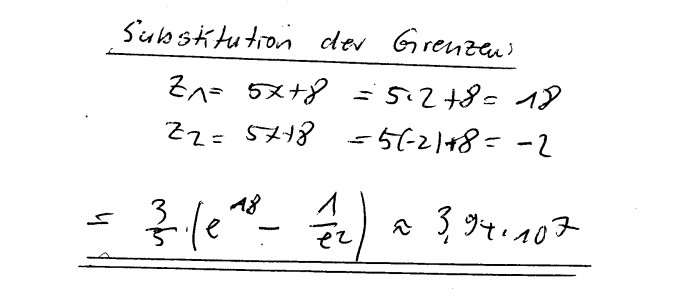 Substitution der Grenzen:
z1 = 5x+8 = 5·2+8 = 18
z2 = 5x+8 = 5(-2)+8 = -2
= 3/5 · (e^18 - 1/e^2) ≈ 3,94·10^7